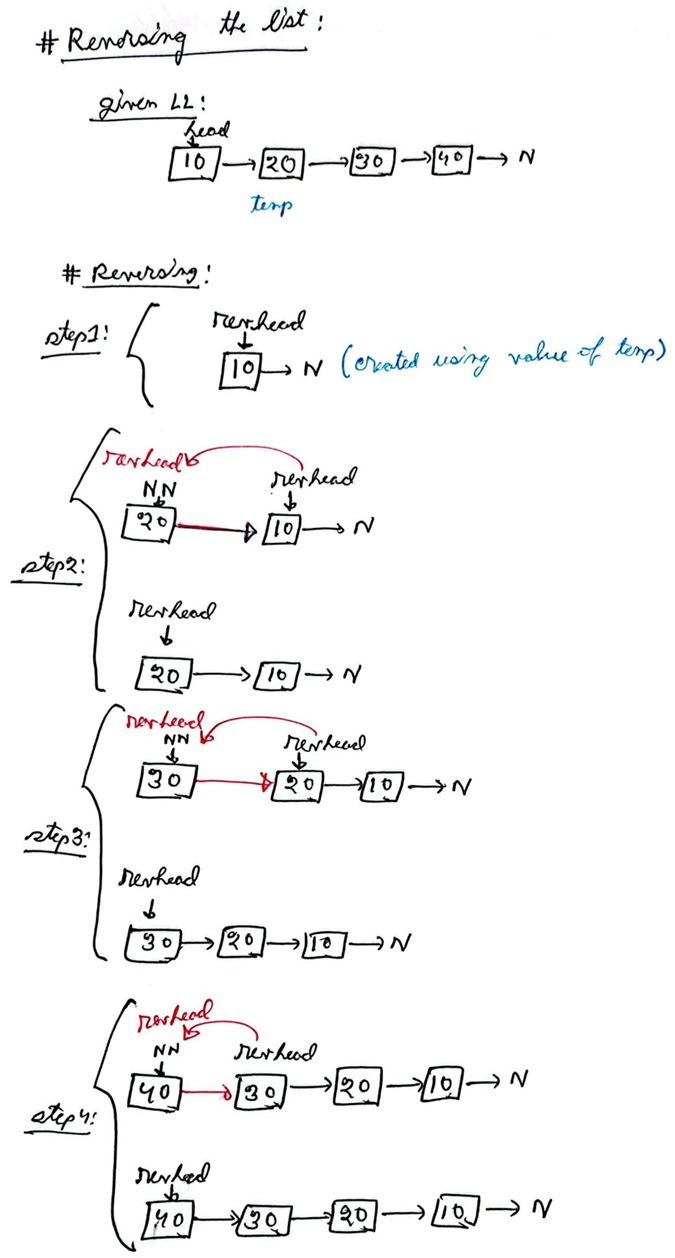 # Reversing the list:
given LL:
head
10 → 20 → 30 → 40 → N
temp
# Reversing:
step1:
revhead
10 → N (created using value of temp)
step2:
revhead
revhead
NN
20 → 10 → N
revhead
20 → 10 → N
step3:
revhead
NN
revhead
30 → 20 → 10 → N
revhead
30 → 20 → 10 → N
step4:
revhead
NN revhead
40 → 30 → 20 → 10 → N
revhead
40 → 30 → 20 → 10 → N